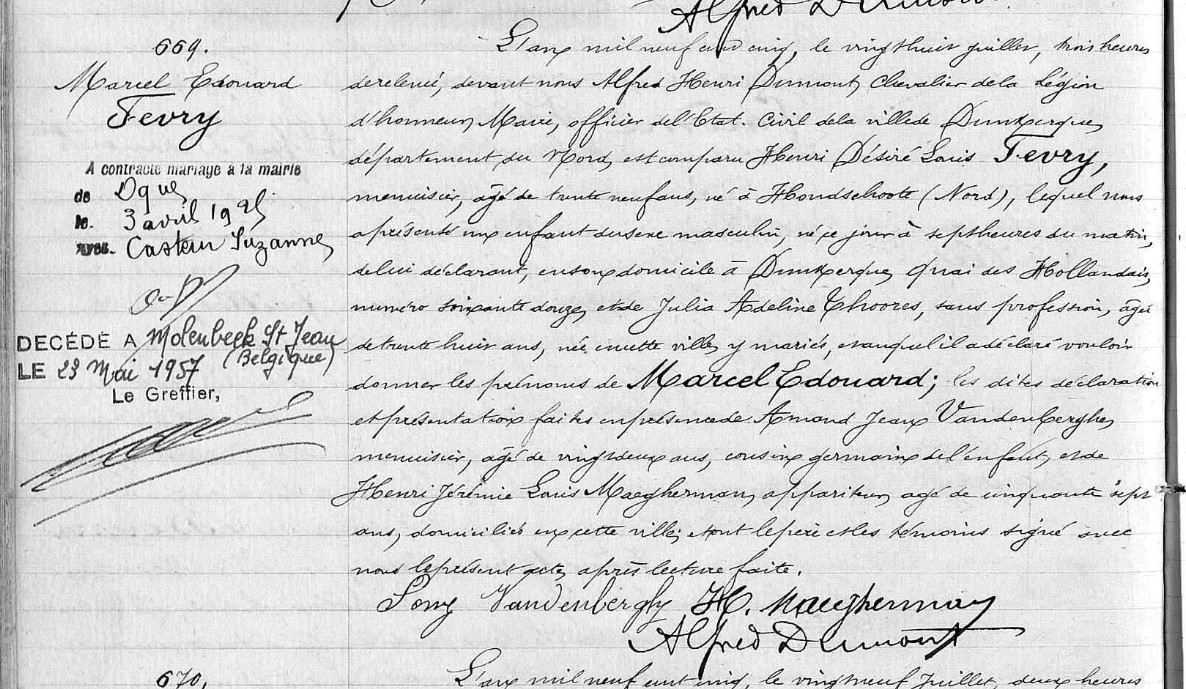 Alfred Dumont
669.
Marcel Edouard
Fevry
A contracté mariage à la mairie
de Dque
le. 3 avril 1925
avec. Castein Suzanne
DECÉDÉ A Molenbeek St Jean
(Belgique)
LE 23 Mai 1957
Le Greffier,
L'an mil neuf cent cinq, le vingt huit juillet, trois heures
de relevé, devant nous Alfred Henri Dumont, Chevalier de la Légion
d'honneur, Maire, officier de l'Etat Civil de la ville de Dunkerque,
département du Nord, est comparu Henri Désiré Louis Fevry,
menuisier, âgé de trente neuf ans, né à Hondschoote (Nord), lequel nous
a présenté un enfant du sexe masculin, né ce jour à sept heures du matin,
de lui déclarant, en son domicile à Dunkerque, Quai des Hollandais,
numéro soixante douze, et de Julia Adeline Choores, sans profession, âgée
de trente huit ans, née en cette ville, y mariés, et auquel il a déclaré vouloir
donner les prénoms de Marcel Edouard; les dites déclaration
et présentation faites en présence de Amand Jean Vandenberghe,
menuisier, âgé de vingt deux ans, cousin germain de l'enfant, et de
Henri Jérémie Louis Maegherman, appariteur, âgé de cinquante sept
ans, domiciliés en cette ville; et ont le père et les témoins signé avec
nous le présent acte, après lecture faite.
Vandenberghe H. Maegherman
Alfred Dumont
670.
L'an mil neuf cent cinq, le vingt neuf Juillet, deux heures